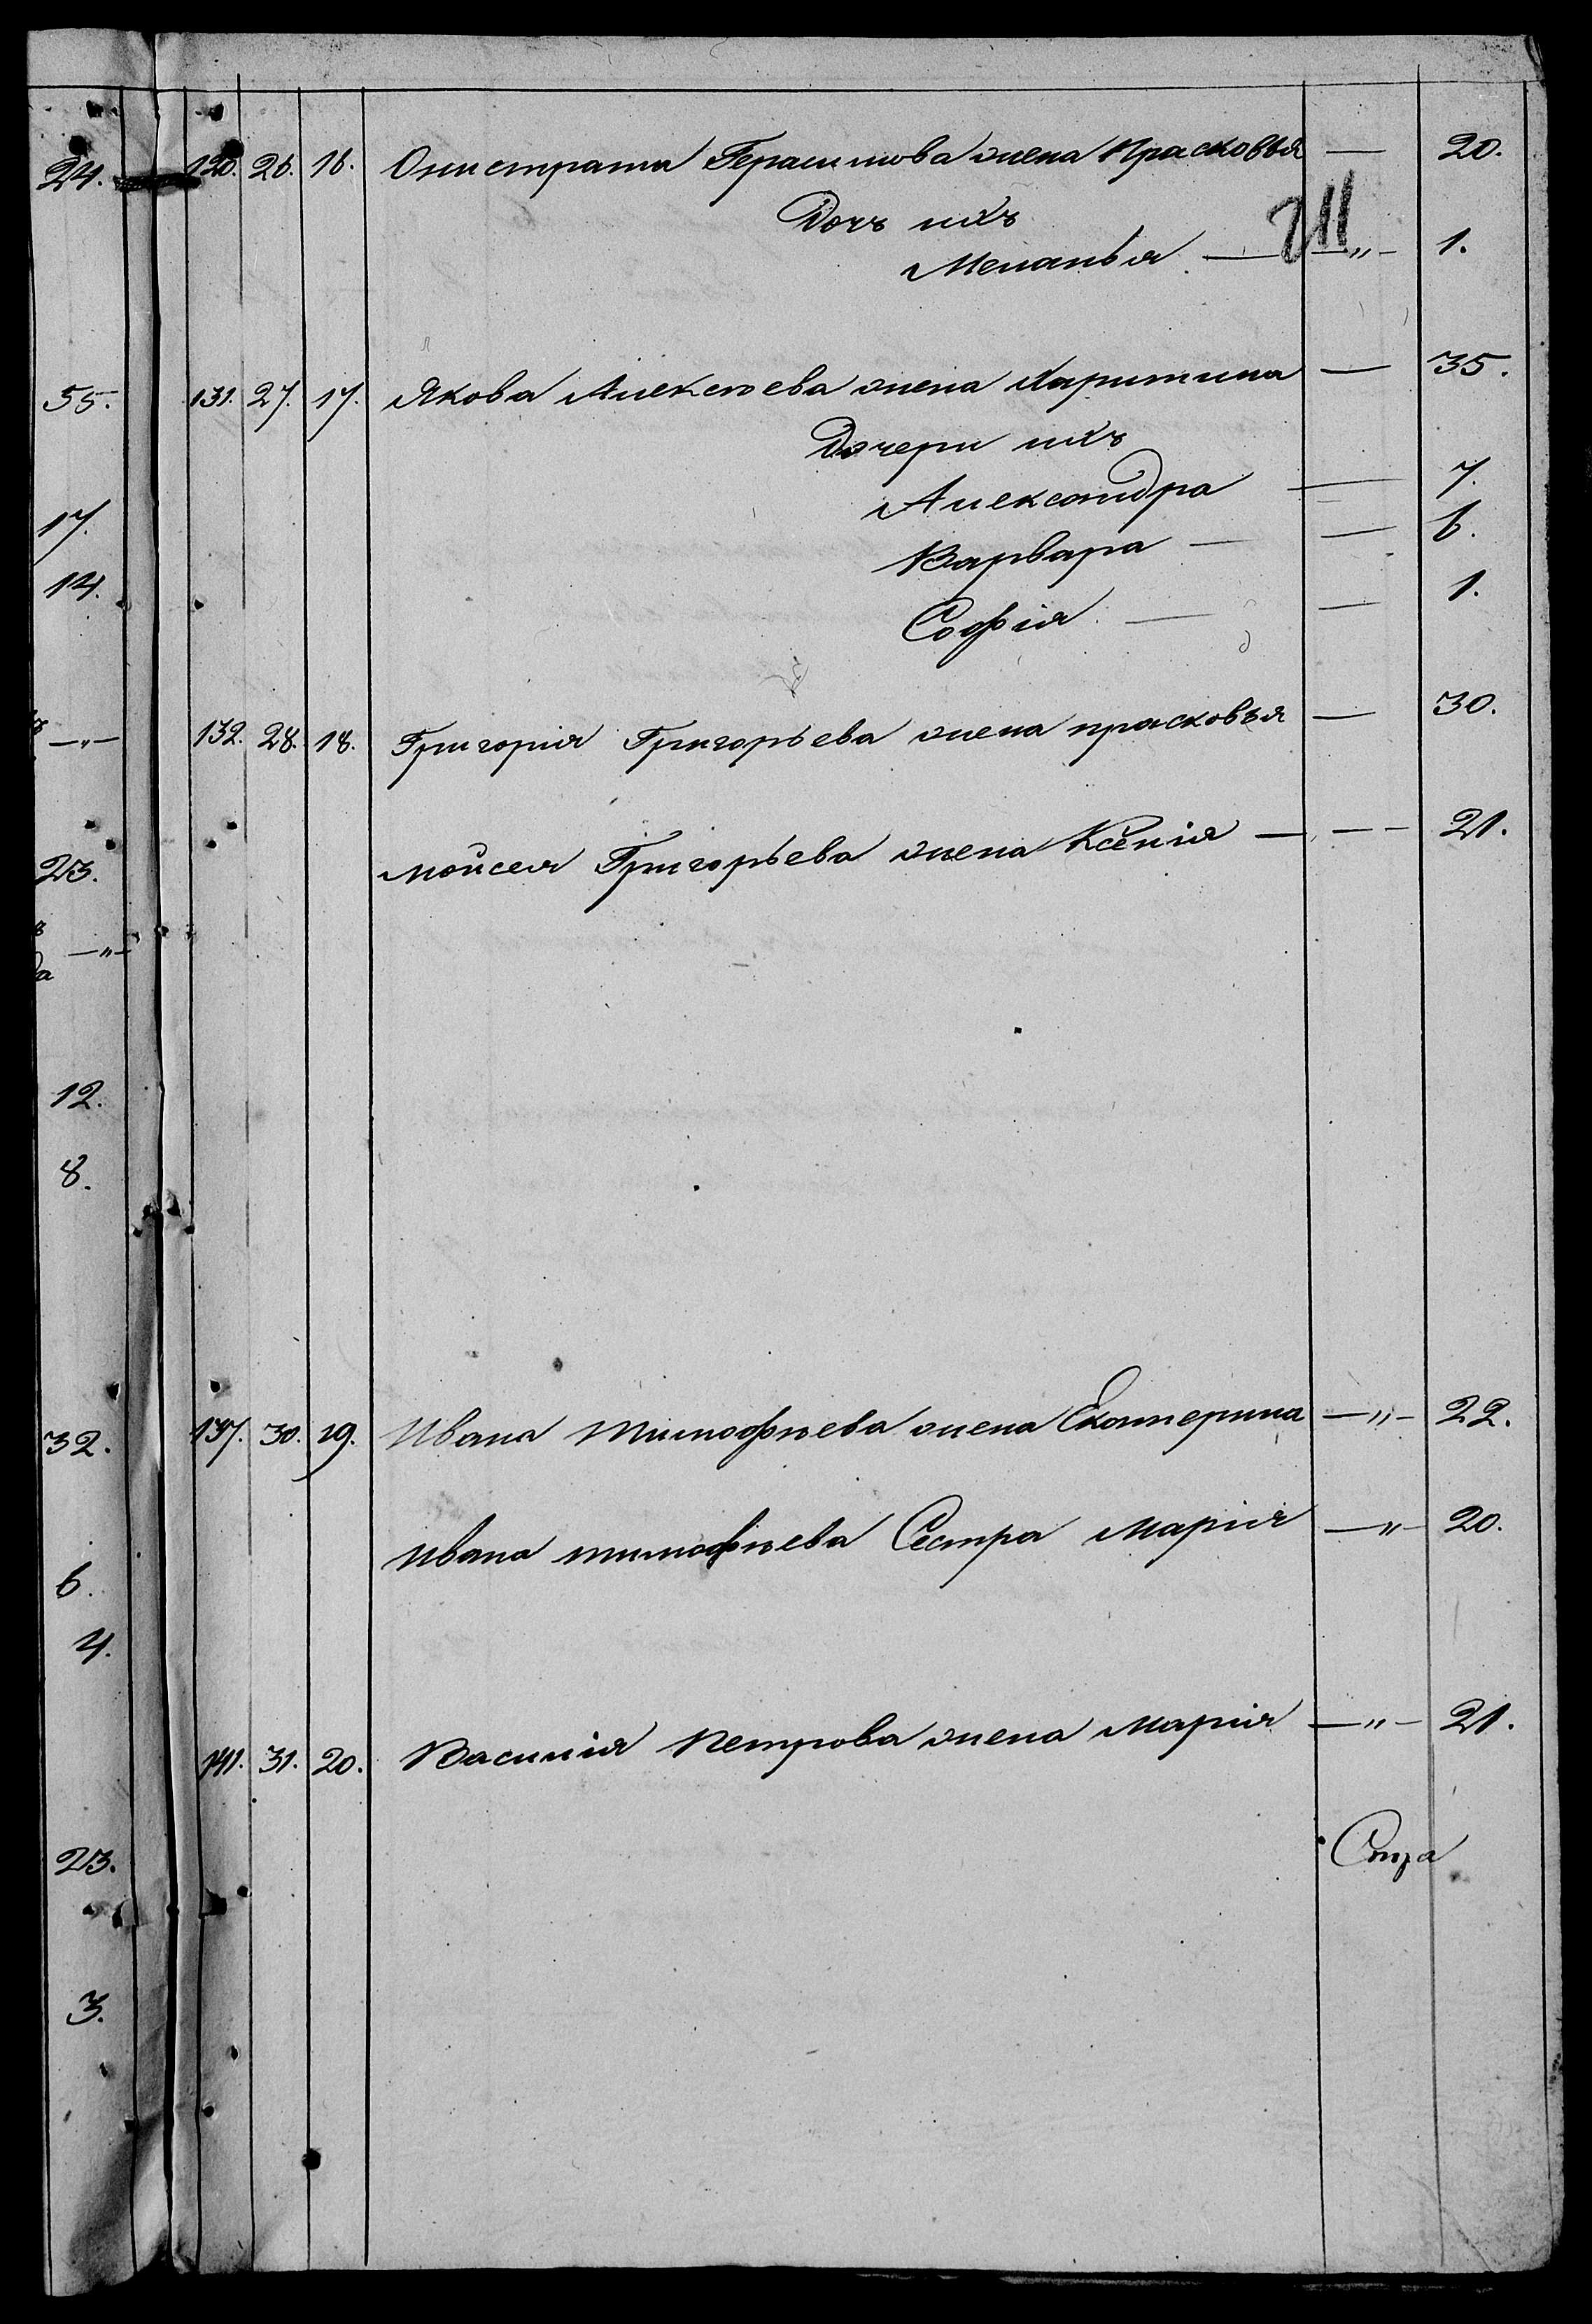 24. 120. 26. 16. Онистрата Герасимова жена Прасковья — 20.
Дочь ихъ
Меланья. — —„— 1.
55. 131. 27. 17. Якова Алексѣева жена Харитина — 35.
Дочери ихъ
Александра — 7.
17. Варвара — — 6.
14. Софія. — — 1.
—„— 132. 28. 18. Григорія Григорьева жена прасковья — 30.
23. мойсея Григорьева жена Ксенія — — — 21.
—„—
12.
8.
32. 137. 30. 19. Ивана Тимофѣева жена Екатерина —„— 22.
Ивана тимофѣева Сестра Марія —„— 20.
6.
4.
141. 31. 20. Василія Петрова жена Марія —„— 21.
23.
3.